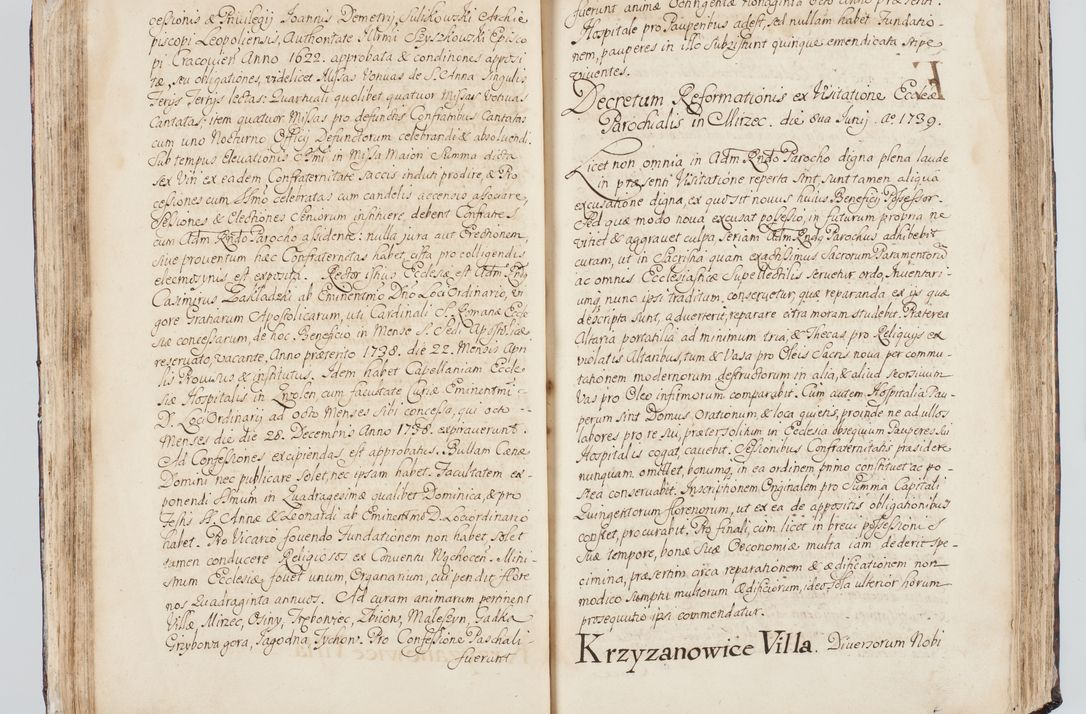 cessionis & Privilegij Joannis Demetrij Sulikowski Archie
piscopi Leopoliensis, Authoritate Illrmi Szyszkowski Episco
pi Cracovien Anno 1622. approbata & conditiones apposi
tæ, seu obligationes, videlicet Missas Votivas de S. Anna singulis
Ferijs Tertijs lectas: Quartuali quolibet quatuor Missas Votivas
Cantatas: item quatuor Missas pro defunctis Confratribus Cantatas
cum uno Nocturno Officij Defunctorum celebrandi & absolvendi.
Sub tempus Elevationis SSmi in Missa Maiori Summa dicta
sex Viri ex eadem Confraternitate saccis induti prodire, & Pro
cessiones cum SSmo celebratas cum candelis accensis associare,
Sessiones & Electiones Seniorum instituere debent Confratres
cum Adm. Rndo Parocho assidente: nulla jura aut Erectionem,
sive proventum hæc Confraternitas habet, cista pro colligendis
eleemosynis est exposita. Rector istius Ecclesiæ est Adm. Rndg
Casimirus Zakladzki ab Eminentmo Dno Loci Ordinario, vi
gore Gratiarum Apostolicarum, uti Cardinali S. Romanæ Eccle
siæ concessarum, de hoc Beneficio in Mense S. Sedi Apostolicæ
reservato, vacante, Anno præterito 1738. die 22. Mensis Apri
lis Provisus & institutus. Idem habet Capellaniam Eccle
siæ Hospitalis in Zwolen cum facultate Curiæ Eminentmi
D. Loci Ordinarij ad octo Menses sibi concessa, qui octo
Menses die die 28. Decembris Anno 1738. expiraverunt.
Ad Confessiones excipiendas est approbatus. Bullam Cænæ
Domini nec publicare solet, nec ipsam habet. Facultatem ex-
ponendi SSmum in Quadragesimæ qualibet Dominica, & pro
Festis S. Annæ & Leonardi ab Eminentmo D. Loci ordinario
habet. Pro Vicario fovendo Fundationem non habet, solet
tamen conducere Religiosos ex Conventu Wąchocen. Mini-
strum Ecclesiæ fovet unum, Organarium, cui pendit flore
nos Quadraginta annuos. Ad curam animarum pertinent
Villæ, Mirzec, Osiny, Trębowiec, Zbiiow, Maleszyn, Gadka
Grzybowa gora, Jagodna, Tychow. Pro Confessione Paschali
fuerunt
fuerunt animæ Octingentæ Nonaginta Octo Anno præsenti.
Hospitale pro Pauperibus adest, sed nullam habet Fundatio-
nem, pauperes in illo subsistunt quinque emendicata stipe
viventes.
Decretum Reformationis ex Visitatione Eccæ
Parochialis in Mirzec. die 8va Junij. ao 1739.
Licet non omnia in Adm. Rndo Parocho digna plena laude
in præsenti Visitatione reperta sint, sunt tamen aliqua
excusatione digna, ex quo sit novus huius Beneficij Possessor.
Sed quæ modo nova excusat possessio, in futurum propria ne
vitiet & aggravet culpa, seriam Adm. Rndg Parochus adhibebit
curam, ut in Sacristia quam exactissimus Sacrorum Paramentorū
ac omnis Ecclesiasticæ Supellectilis servetur ordo, Inventari-
umq nunc ipsi traditum, conservetur, quæ reparanda ex ijs quæ
descripta sunt, adverterit, reparare citra moram studebit. Præterea
Altaria portatilia ad minimum tria, & Thecas pro Reliquijs ex
violatis Altaribus, tum & Vasa pro Oleis Sacris nova per commu-
tationem modernorum destructorum in alia, & aliud seorsivum
Vas pro Oleo infirmorum comparabit. Cum autem Hospitalia Pau-
perum sint Domus Orationum, & loca quietis, proinde ne ad ullos
labores pro re sui, præter solitum in Ecclesia obsequium Pauperes sui
Hospitalis cogat, cavebit. Sessionibus Confraternitatis præsidere
nunquam omittet, bonumq in ea ordinem primo constituet ac po-
stea conservabit. Inscriptionem Originalem pro Summa Capitali
Quingentorum florenorum, ut ex ea de appositis obligationibus
constet, procurabit. Pro finali, cum licet in brevi possessionis
suæ tempore, bonæ suæ Oeconomiæ multa iam dederit spe-
cimina, præsertim circa reparationem & ædificationem non
modico sumptu multorum ædificiorum, ideo sola ulterior horum
prosequutio ipsi commendatur.
Krzyzanowice Villa. Diversorum Nobi